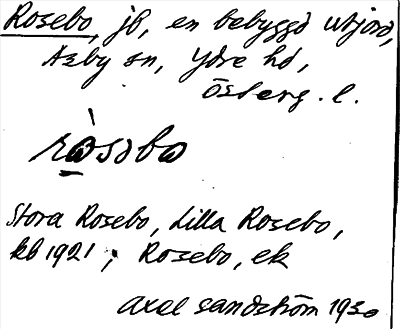 Rosebo, jb, en bebyggd utjord,
Asby sn, Ydre hd,
Österg. l.
ràsəbo
Stora Rosebo, Lilla Rosebo,
kb 1921; Rosebo, ek
Axel Sandström 1930